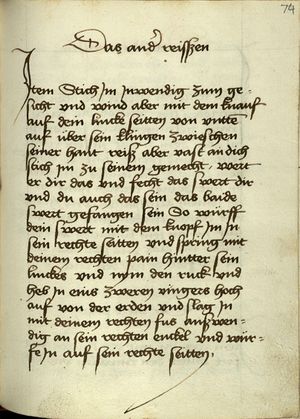 74
Das and' reiszen
Item Stich Im Inwendig zum ge-
sicht und wind aber mit dem knauf
auf dein lincke seitten von untte
auf über sein klingen zwieschen
seiner hant reisz aber vast an dich
stich im zu seinem gemecht, wert
er dir das und fecht das swert dir
und du auch das sein das baide
swert gefangen sein So würff
dein swert mit dem knopf Im In
sein rechte seitten und spring mit
deinem rechten pain hintter sein
linckes und nym den ruck und
heb in eins zweren vingers hoch
auf von der erden und slag In
mit deinem rechten fus auszwen-
dig an sein rechten enckel und wür-
fe in auf sein rechte seitten.